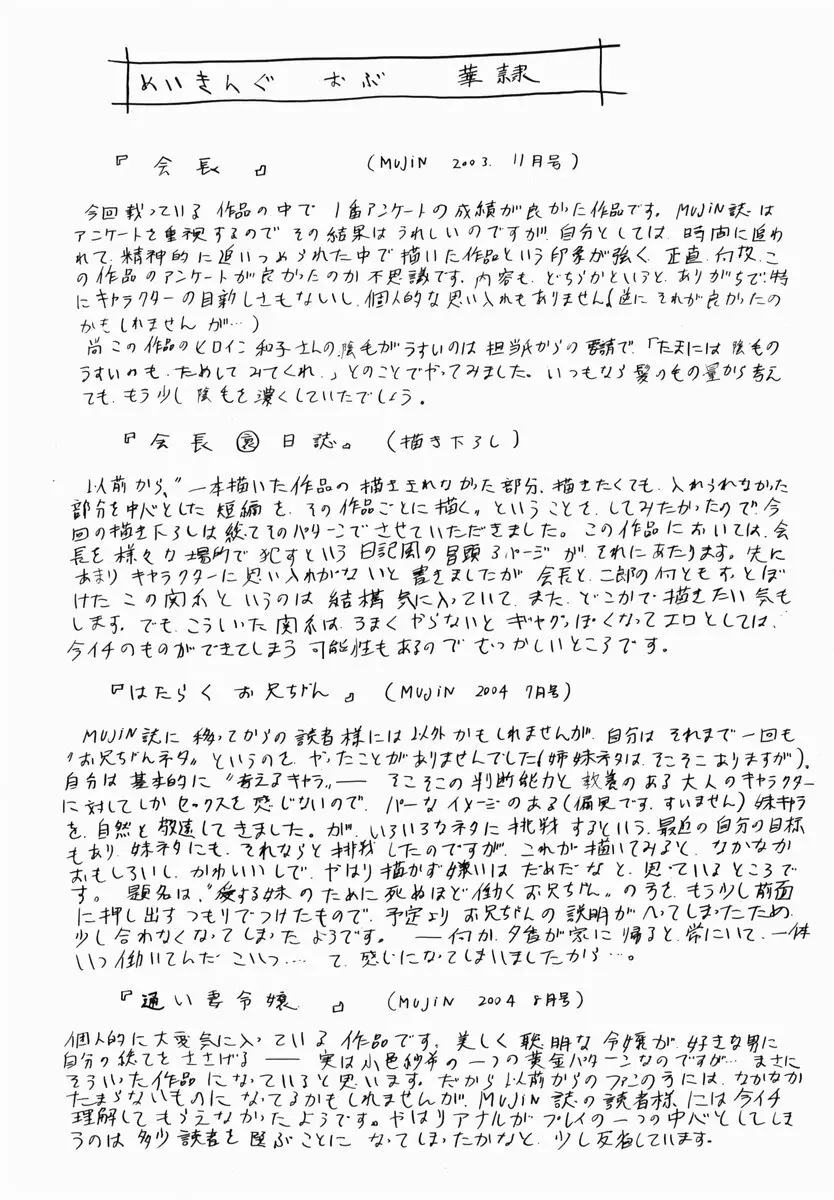 めいきんぐ おぶ 華隷
『会長』 (MUJIN 2003. 11月号)
今回載っている作品の中で 1番アンケートの成績が良かった作品です。MUJIN誌は
アンケートを重視するので その結果はうれしいのですが、自分としては、時間に追われ
て、精神的に追いつめられた中で描いた作品という印象が強く、正直、何故、こ
の作品のアンケートが良かったのか不思議です。内容も、どちらかというと、ありがちで、特
にキャラクターの目新しさもないし、個人的な思い入れもありません(逆に それが良かったの
かもしれませんが…)
尚この作品のヒロイン和子さんの陰毛がうすいのは 担当氏からの要請で、「たまには陰毛の
うすいのも、ためしてみてくれ。」とのことでやってみました。いつもなら髪の毛の量から考え
ても、もう少し陰毛を濃くしていたでしょう。
『会長㊙日誌。(描き下ろし)
以前から、〝一本描いた作品の描ききれなかった部分、描きたくても、入れられなかった
部分を中心とした短編を、その作品ごとに描く〟ということを、してみたかったので、今
回の描き下ろしは総てそのパターンでさせていただきました。この作品においては、会
長を様々な場所で犯すという日記風の冒頭3ページが、それにあたります。先に
あまりキャラクターに思い入れがないと書きましたが 会長と、二郎の何ともすっとぼ
けたこの関係というのは 結構気に入っていて、また、どこかで、描きたい気も
します。でも、こういった関係は、うまくやらないとギャグっぽくなってエロとしては、
今イチのものができてしまう可能性もあるのでむつかしいところです。
『はたらくお兄ちゃん』 (MUJIN 2004 7月号)
MUJIN誌に移ってからの読者様には以外かもしれませんが、自分はそれまで一回も
〝お兄ちゃんネタ〟というのを、やったことがありませんでした(姉妹ネタは、そこそこありますが)。
自分は基本的に〝考えるキャラ〟── そこそこの判断能力と教養のある大人のキャラクター
に対してしかセックスを感じないので、パーなイメージのある(偏見です、すいません)妹キャラ
を、自然と敬遠してきました。が、いろいろなネタに挑戦するという、最近の自分の目標
もあり、妹ネタにも、それならと挑戦したのですが、これが描いてみると、なかなか
おもしろいし、かわいいしで、やはり描かず嫌いはだめだなと、思っているところで
す。題名は、〝愛する妹のために死ぬほど働くお兄ちゃん〟の方を、もう少し前面
に押し出すつもりでつけたもので、予定よりお兄ちゃんの説明がへってしまったため、
少し合わなくなってしまったようです。 ──何か、夕香が家に帰ると、常にいて、一体
いつ働いてんだこいつ…… て、感じになってしまいましたから…。
『通い妻令嬢』 (MUJIN 2004 8月号)
個人的に大変気に入っている作品です。美しく聡明な令嬢が、好きな男に
自分の総てをささげる── 実は小邑紗希の一つの黄金パターンなのですが… まさに
そういった作品になっていると思います。だから以前からのファンの方には、なかなか
たまらないものになってるかもしれませんが、MUJIN誌の読者様には今イチ
理解してもらえなかったようです。やはりアナルがプレイの一つの中心としてしま
うのは多少読者を選ぶことになってしまったかなと、少し反省しています。